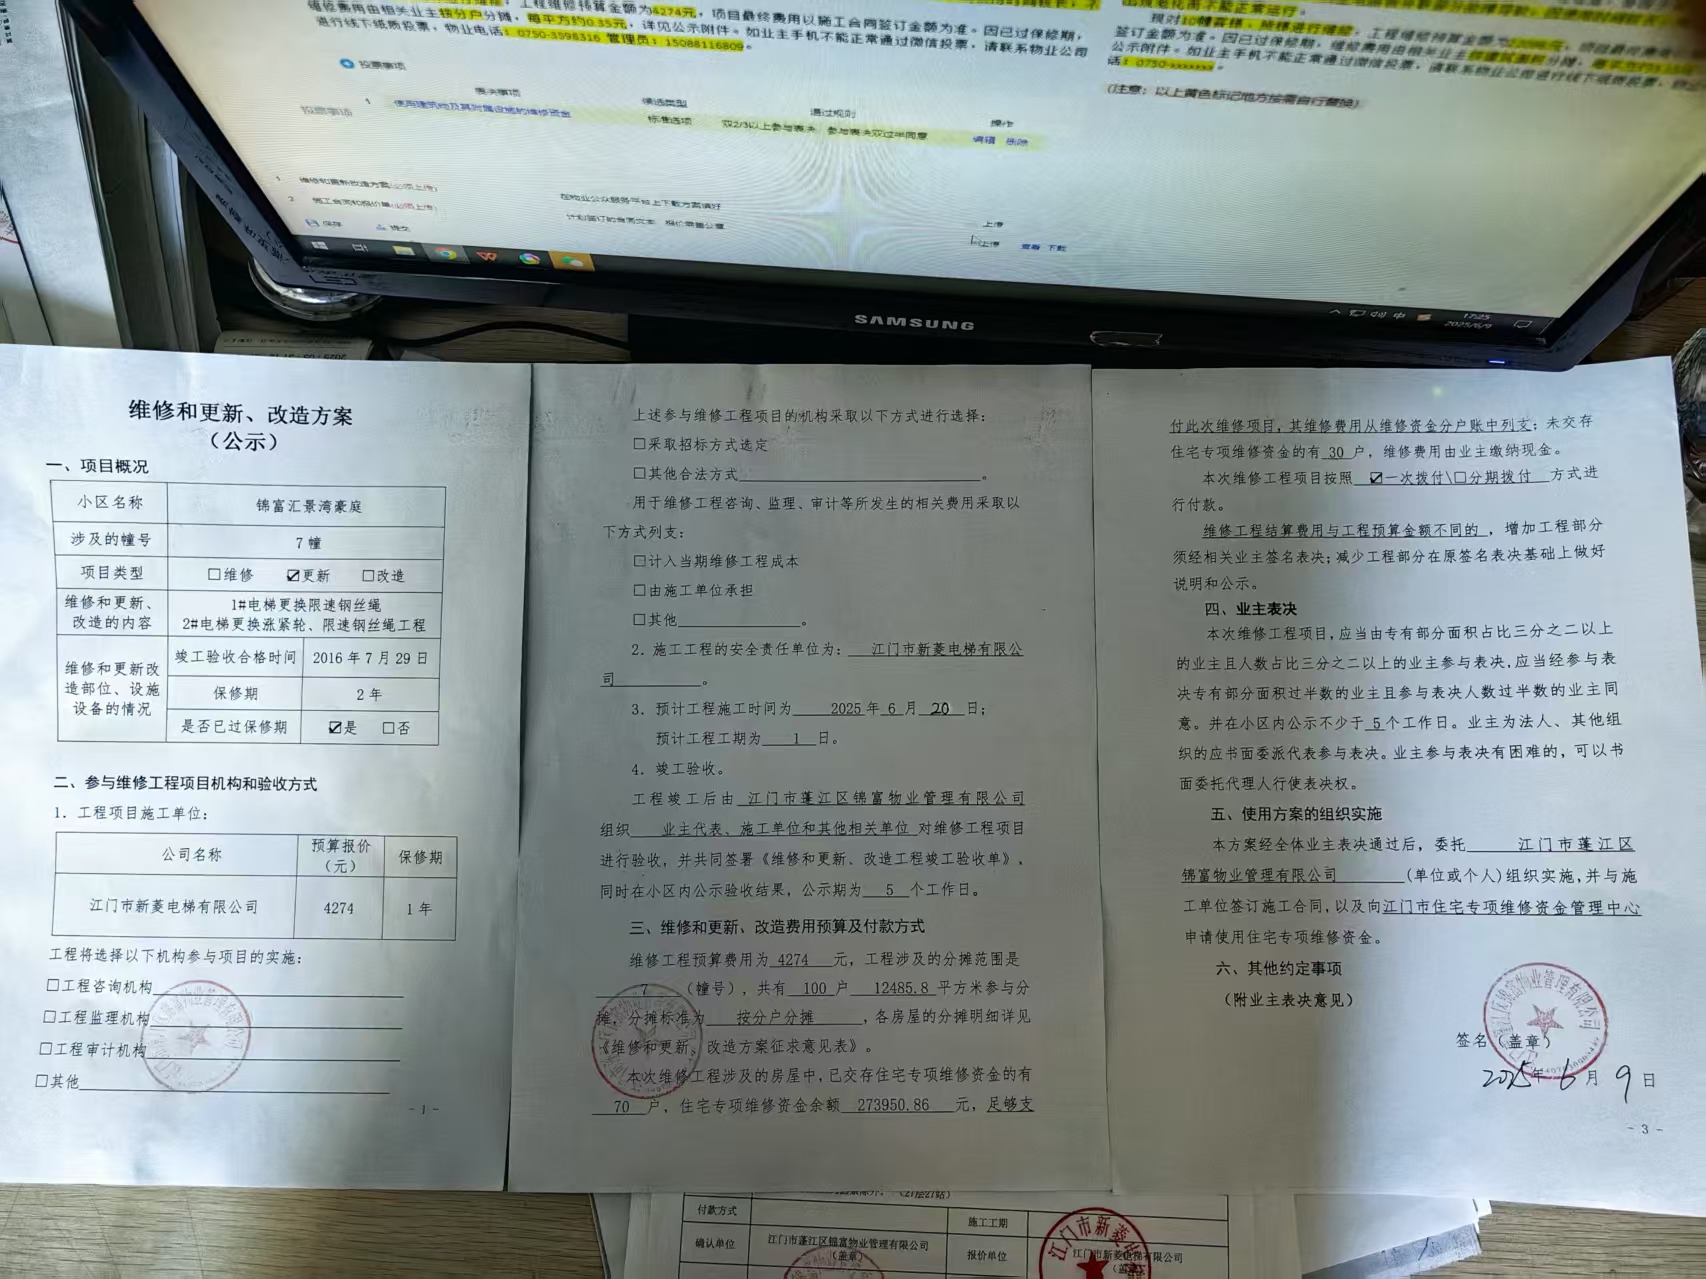 工程维修预算金额为4274元，项目最终费用以施工合同签订金额为准。因已过保修期，
维修费用由相关业主按分户分摊，每平方约0.35元，详见公示附件。如业主手机不能正常通过微信投票，请联系物业公司
进行线下纸质投票，物业电话：0750-3598316 管理员：15088116809。
签订金额为准。因已过保修期，维修费用由相关业主
公示附件。如业主手机不能正常通过微信投票，请联系物业公司进行线下纸质投票，
话：0750-xxxxxxx。
(注意：以上黄色标记地方按需自行替换)
投票事项
表决事项 候选类型 通过规则 操作
投票事项 1 使用建筑物及其附属设施的维修资金 标准选项 双2/3以上参与表决，参与表决双过半同意 编辑 删除
1 维修和更新改造方案(必须上传) 在物业公众服务平台上下载方案填好 上传
2 施工合同和报价单(必须上传) 计划签订的合同文本、报价需盖公章 上传 查看 下载
保存 提交
17:25
2025/6/9
SAMSUNG
维修和更新、改造方案
（公示）
一、项目概况
小区名称 锦富汇景湾豪庭
涉及的幢号 7幢
项目类型 □维修 ☑更新 □改造
维修和更新、改造的内容 1#电梯更换限速钢丝绳
2#电梯更换涨紧轮、限速钢丝绳工程
维修和更新改造部位、设施设备的情况 竣工验收合格时间 2016年7月29日
保修期 2年
是否已过保修期 ☑是 □否
二、参与维修工程项目机构和验收方式
1. 工程项目施工单位：
公司名称 预算报价（元） 保修期
江门市新菱电梯有限公司 4274 1年
工程将选择以下机构参与项目的实施：
□工程咨询机构
□工程监理机构
□工程审计机构
□其他
- 1 -
上述参与维修工程项目的机构采取以下方式进行选择：
□采取招标方式选定
□其他合法方式。
用于维修工程咨询、监理、审计等所发生的相关费用采取以
下方式列支：
□计入当期维修工程成本
□由施工单位承担
□其他。
2. 施工工程的安全责任单位为：江门市新菱电梯有限公
司。
3. 预计工程施工时间为 2025 年 6 月 20 日；
预计工程工期为 1 日。
4. 竣工验收。
工程竣工后由 江门市蓬江区锦富物业管理有限公司
组织 业主代表、施工单位和其他相关单位 对维修工程项目
进行验收，并共同签署《维修和更新、改造工程竣工验收单》，
同时在小区内公示验收结果，公示期为 5 个工作日。
三、维修和更新、改造费用预算及付款方式
维修工程预算费用为 4274 元，工程涉及的分摊范围是
7 （幢号），共有 100 户 12485.8 平方米参与分
摊，分摊标准为 按分户分摊 ，各房屋的分摊明细详见
《维修和更新、改造方案征求意见表》。
本次维修工程涉及的房屋中，已交存住宅专项维修资金的有
70 户，住宅专项维修资金余额 273950.86 元，足够支
付此次维修项目，其维修费用从维修资金分户账中列支；未交存
住宅专项维修资金的有 30 户，维修费用由业主缴纳现金。
本次维修工程项目按照 ☑一次拨付\□分期拨付 方式进
行付款。
维修工程结算费用与工程预算金额不同的，增加工程部分
须经相关业主签名表决；减少工程部分在原签名表决基础上做好
说明和公示。
四、业主表决
本次维修工程项目，应当由专有部分面积占比三分之二以上
的业主且人数占比三分之二以上的业主参与表决，应当经参与表
决专有部分面积过半数的业主且参与表决人数过半数的业主同
意。并在小区内公示不少于 5 个工作日。业主为法人、其他组
织的应书面委派代表参与表决。业主参与表决有困难的，可以书
面委托代理人行使表决权。
五、使用方案的组织实施
本方案经全体业主表决通过后，委托 江门市蓬江区
锦富物业管理有限公司 （单位或个人）组织实施，并与施
工单位签订施工合同，以及向江门市住宅专项维修资金管理中心
申请使用住宅专项维修资金。
六、其他约定事项
（附业主表决意见）
签名（盖章）
2025年 6 月 9 日
- 3 -
（27层27站）
付款方式 施工工期
确认单位 江门市蓬江区锦富物业管理有限公司（盖章） 报价单位 江门市新菱电梯有限公司